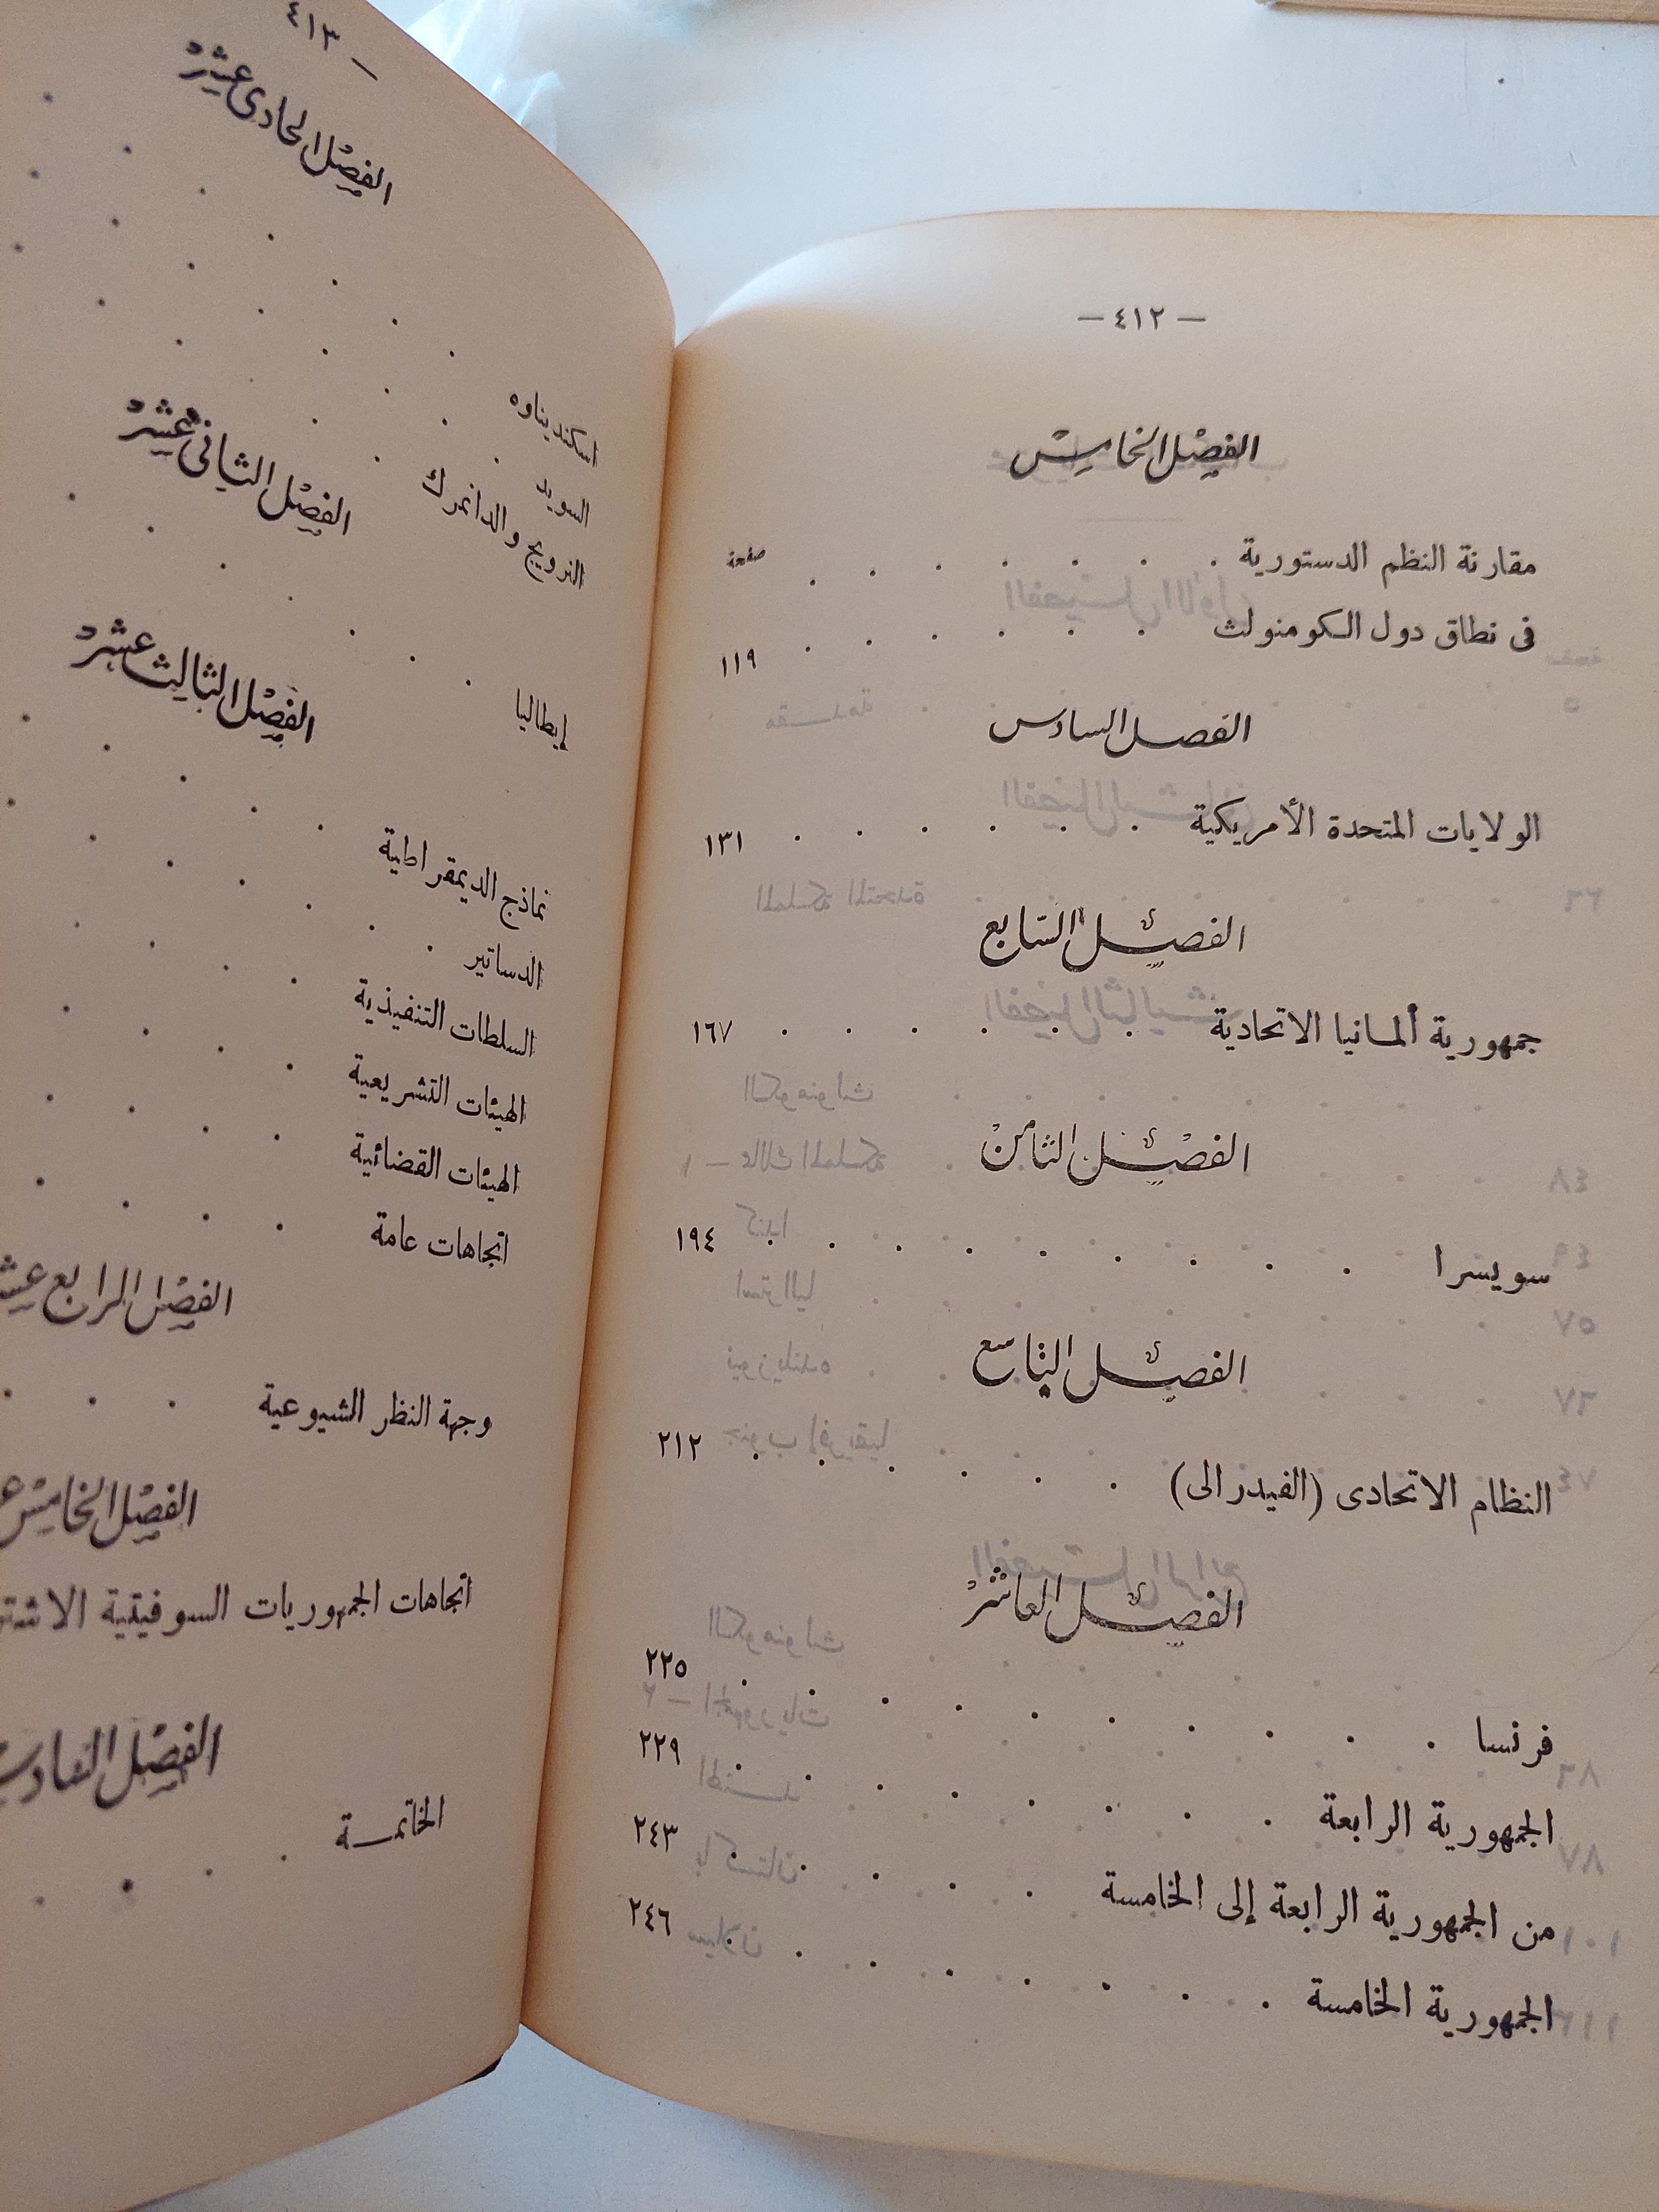 — ٤١٢ —
الفصل الخامس
مقارنة النظم الدستورية . . . . . . . صفحة
فى نطاق دول الكومنولث . . . . . . ١١٩
الفصل السادس
الولايات المتحدة الأمريكية . . . . . . ١٣١
الفصل السابع
جمهورية ألمانيا الاتحادية . . . . . . ١٦٧
الفصل الثامن
سويسرا . . . . . . . . . ١٩٤
الفصل التاسع
النظام الاتحادى (الفيدرالى) . . . . . . ٢١٢
الفصل العاشر
فرنسا . . . . . . . . . . ٢٢٥
الجمهورية الرابعة . . . . . . . . ٢٢٩
من الجمهورية الرابعة إلى الخامسة . . . . . ٢٤٣
الجمهورية الخامسة . . . . . . . . ٢٤٦
— ٤١٣
الفصل الحادى عشر
اسكنديناوه
السويد
النرويج والدانمرك
الفصل الثانى عشر
إيطاليا
الفصل الثالث عشر
نماذج الديمقراطية
الدساتير
السلطات التنفيذية
الهيئات التشريعية
الهيئات القضائية
اتجاهات عامة
الفصل الرابع
وجهة النظر الشيوعية
الفصل الخامس
اتجاهات الجمهوريات السوفيتية
الفصل
الخاتمة